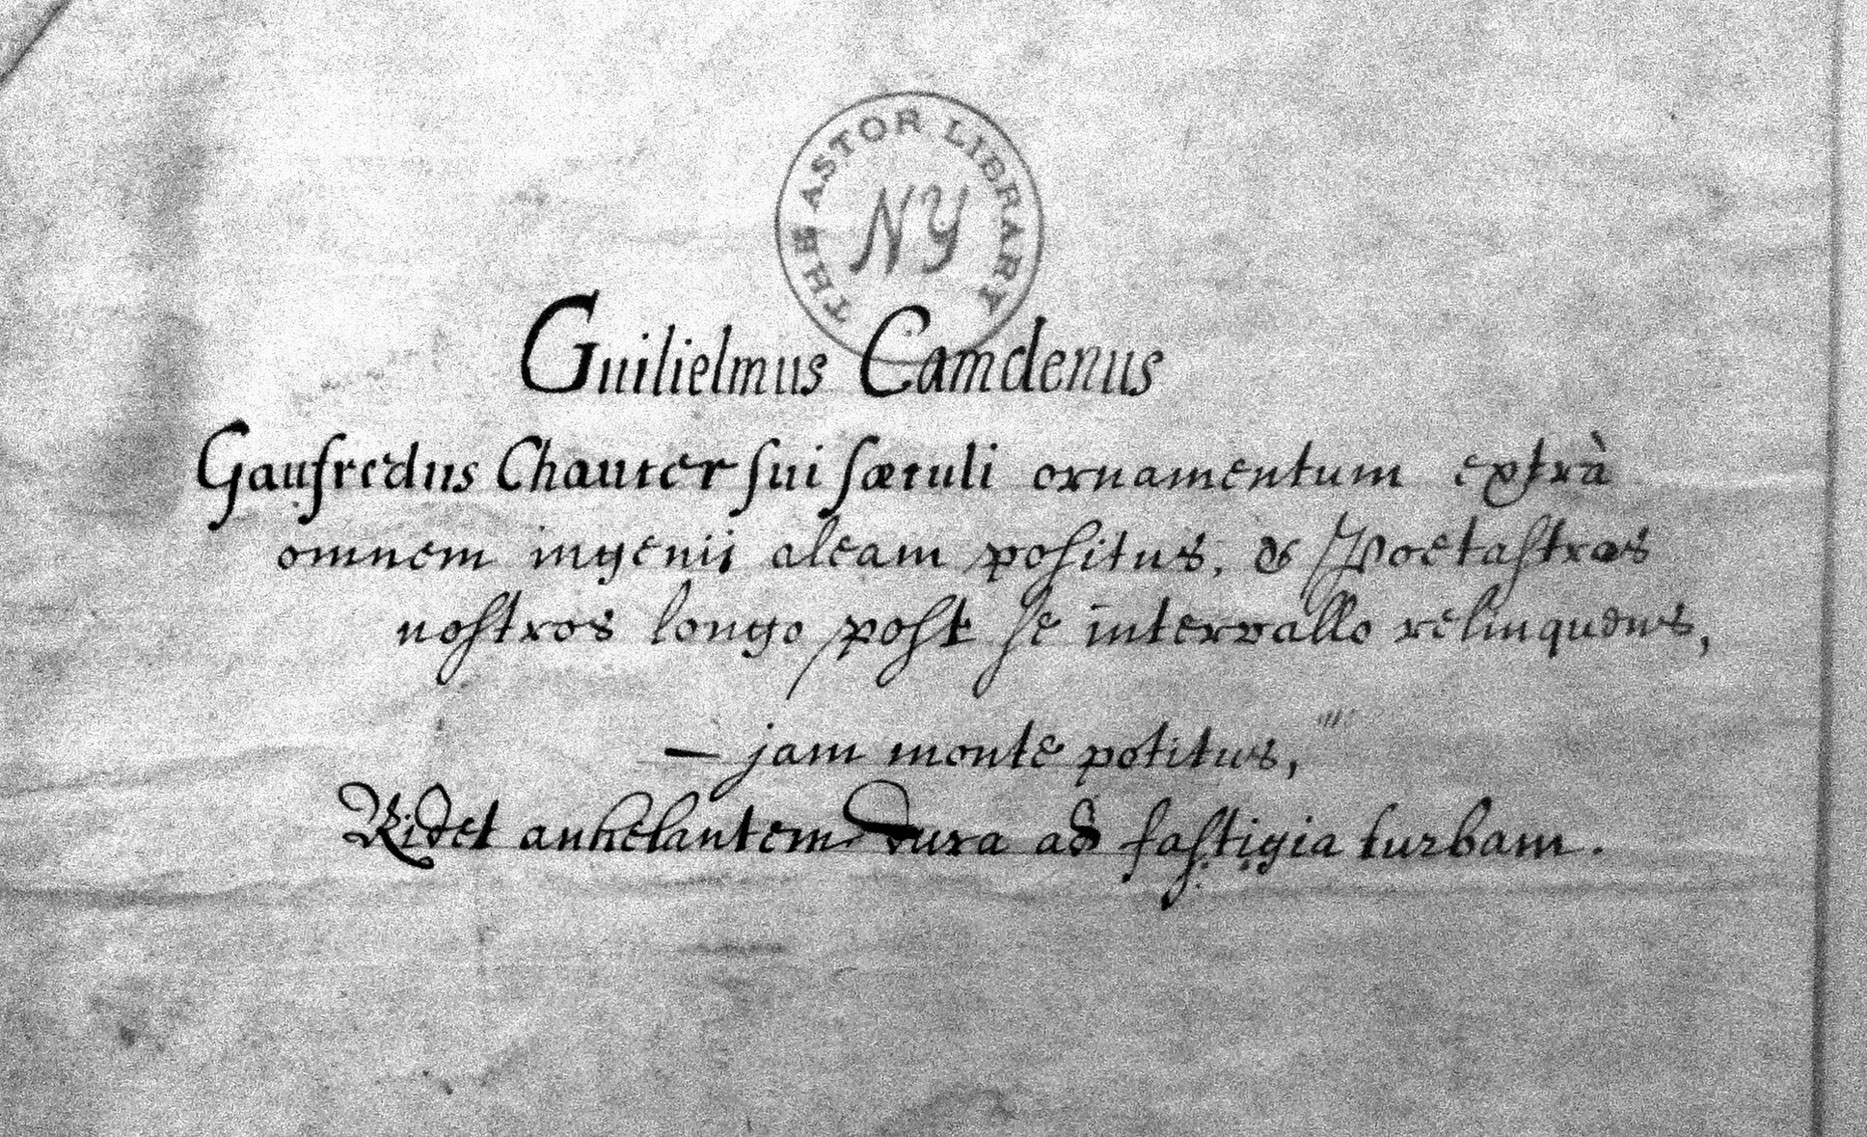 THE ASTOR LIBRARY
NY
Guilielmus Camdenus
Gaufredus Chaucer ſui ſæculi ornamentum extrà
omnem ingenii aleam poſitus, & Poetaſtras
noſtros longo poſt ſe intervallo relinquens,
— jam monte potitus,
Ridet anhelantem dura ad faſtigia turbam.